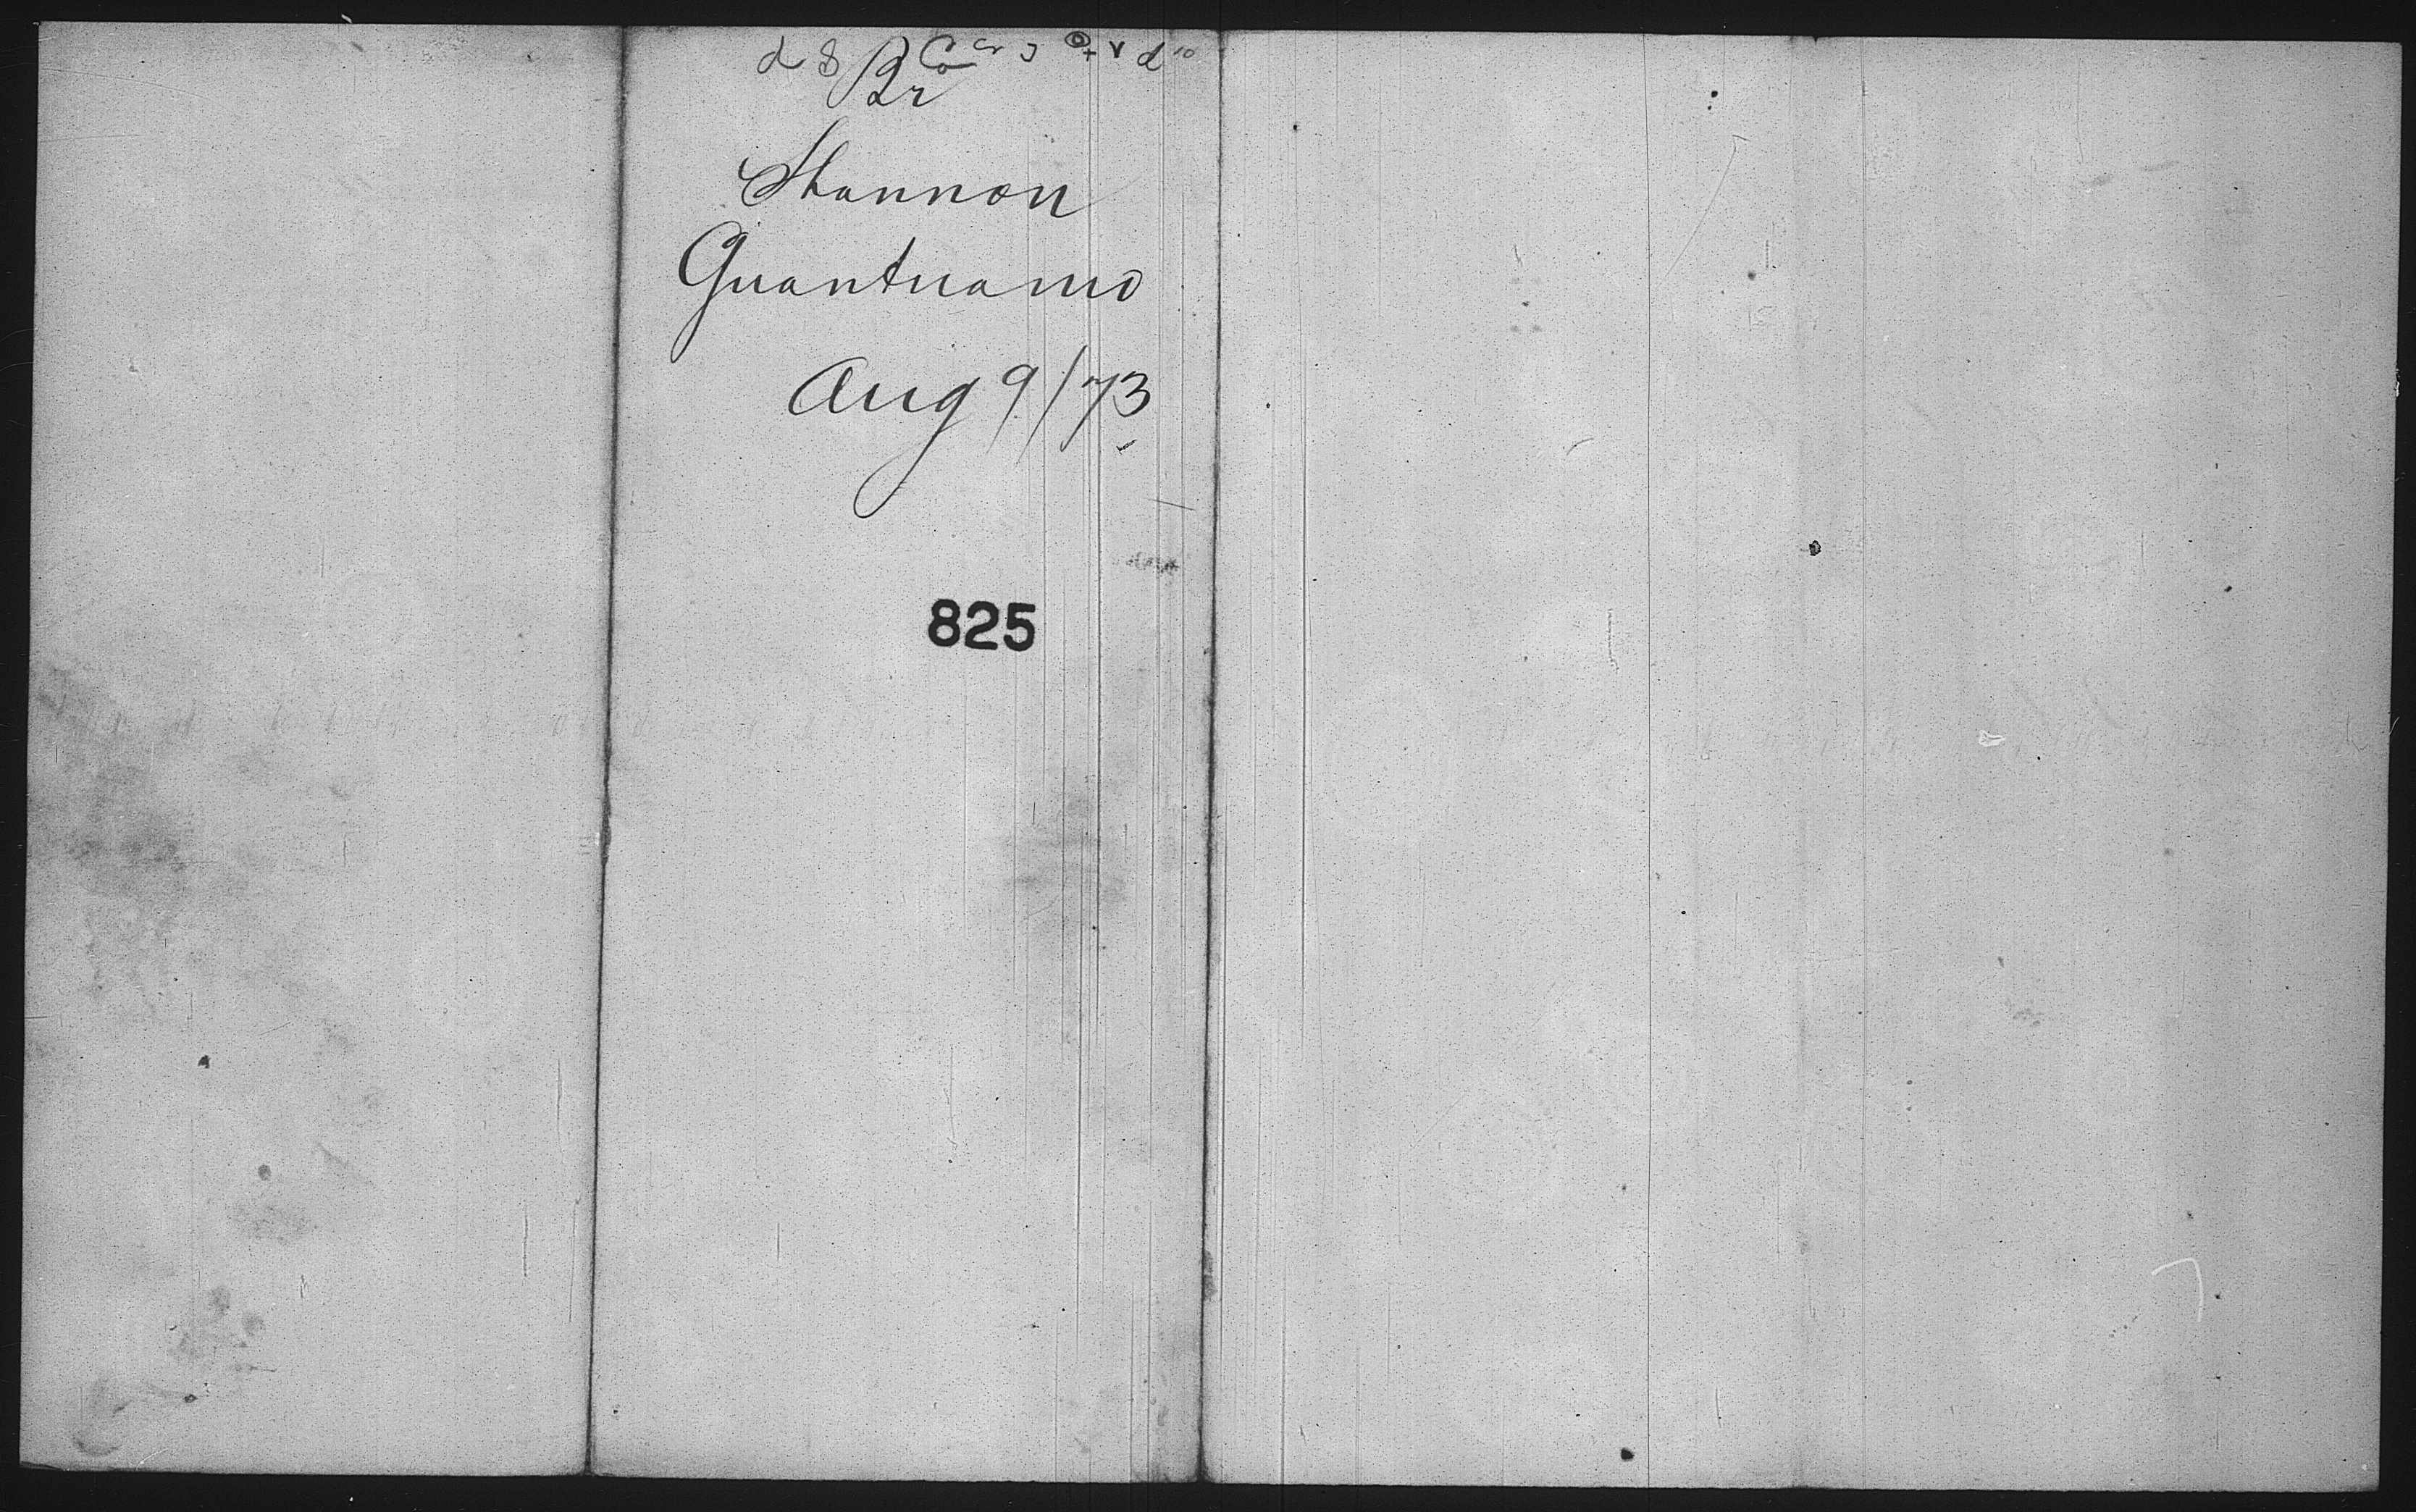 Br
Shannon
Guantuamo
Aug 9/73
825